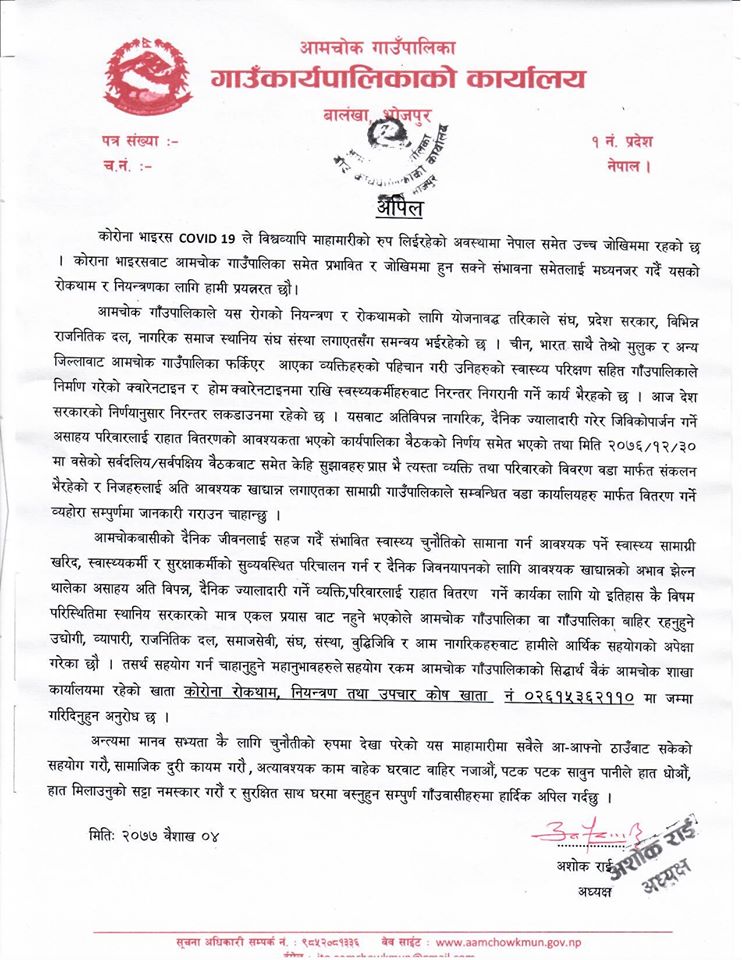 आमचोक गाउँपालिका
गाउँकार्यपालिकाको कार्यालय
बालंखा, भोजपुर
पत्र संख्या :-
१ नं. प्रदेश
च.नं. :-
नेपाल ।
अपिल
कोरोना भाइरस COVID 19 ले विश्वव्यापि माहामारीको रुप लिईरहेको अवस्थामा नेपाल समेत उच्च जोखिममा रहको छ
। कोराना भाइरसवाट आमचोक गाउँपालिका समेत प्रभावित र जोखिममा हुन सक्ने संभावना समेतलाई मध्यनजर गर्दै यसको
रोकथाम र नियन्त्रणका लागि हामी प्रयत्नरत छौ।
आमचोक गाँउपालिकाले यस रोगको नियन्त्रण र रोकथामको लागि योजनावद्ध तरिकाले संघ, प्रदेश सरकार, विभिन्न
राजनितिक दल, नागरिक समाज स्थानिय संघ संस्था लगाएतसँग समन्वय भईरहेको छ । चीन, भारत साथै तेश्रो मुलुक र अन्य
जिल्लावाट आमचोक गाउँपालिका फर्किएर आएका व्यक्तिहरुको पहिचान गरी उनिहरुको स्वास्थ्य परिक्षण सहित गाँउपालिकाले
निर्माण गरेको क्वारेनटाइन र होम क्वारेनटाइनमा राखि स्वस्थ्यकर्मीहरुवाट निरन्तर निगरानी गर्ने कार्य भैरहको छ । आज देश
सरकारको निर्णयानुसार निरन्तर लकडाउनमा रहेको छ । यसवाट अतिविपन्न नागरिक, दैनिक ज्यालादारी गरेर जिविकोपार्जन गर्ने
असाहय परिवारलाई राहात वितरणको आवश्यकता भएको कार्यपालिका बैठकको निर्णय समेत भएको तथा मिति २०७६/१२/३०
मा वसेको सर्वदलिय/सर्वपक्षिय वैठकवाट समेत केहि सुझावहरु प्राप्त भै त्यस्ता व्यक्ति तथा परिवारको विवरण वडा मार्फत संकलन
भैरहेको र निजहरुलाई अति आवश्यक खाद्यान्न लगाएतका सामाग्री गाउँपालिकाले सम्वन्धित वडा कार्यालयहरु मार्फत वितरण गर्ने
व्यहोरा सम्पुर्णमा जानकारी गराउन चाहान्छु ।
आमचोकवासीको दैनिक जीवनलाई सहज गर्दै संभावित स्वास्थ्य चुनौतिको सामाना गर्न आवश्यक पर्ने स्वास्थ्य सामाग्री
खरिद, स्वास्थ्यकर्मी र सुरक्षाकर्मीको सुव्यवस्थित परिचालन गर्न र दैनिक जिवनयापनको लागि आवश्यक खाद्यान्नको अभाव झेल्न
थालेका असाहय अति विपन्न, दैनिक ज्यालादारी गर्ने व्यक्ति,परिवारलाई राहात वितरण गर्ने कार्यका लागि यो इतिहास कै विषम
परिस्थितिमा स्थानिय सरकारको मात्र एकल प्रयास वाट नहुने भएकोले आमचोक गाँउपालिका वा गाँउपालिका बाहिर रहनुहुने
उधोगी, व्यापारी, राजनितिक दल, समाजसेवी, संघ, संस्था, वुद्धिजिवि र आम नागरिकहरुवाट हामीले आर्थिक सहयोगको अपेक्षा
गरेका छौ । तसर्थ सहयोग गर्न चाहानुहुने महानुभावहरुले सहयोग रकम आमचोक गाउँपालिकाको सिद्धार्थ वैकं आमचोक शाखा
कार्यालयमा रहेको खाता कोरोना रोकथाम, नियन्त्रण तथा उपचार कोष खाता नं ०२६१५३६२११० मा जम्मा
गरिदिनुहुन अनुरोध छ ।
अन्त्यमा मानव सभ्यता कै लागि चुनौतीको रुपमा देखा परेको यस माहामारीमा सवैले आ-आफ्नो ठाउँवाट सकेको
सहयोग गरौ, सामाजिक दुरी कायम गरौ , अत्यावश्यक काम बाहेक घरवाट वाहिर नजाऔं, पटक पटक सावुन पानीले हात धोऔं,
हात मिलाउनुको सट्टा नमस्कार गरौं र सुरक्षित साथ घरमा वस्नुहुन सम्पुर्ण गाँउवासीहरुमा हार्दिक अपिल गर्दछु ।
मितिः २०७७ वैशाख ०४
अशोक राई
अध्यक्ष
अशोक राई
अध्यक्ष
सूचना अधिकारी सम्पर्क नं. : ९८५२०८१३३६ वेव साईट : www.aamchowkmun.gov.np